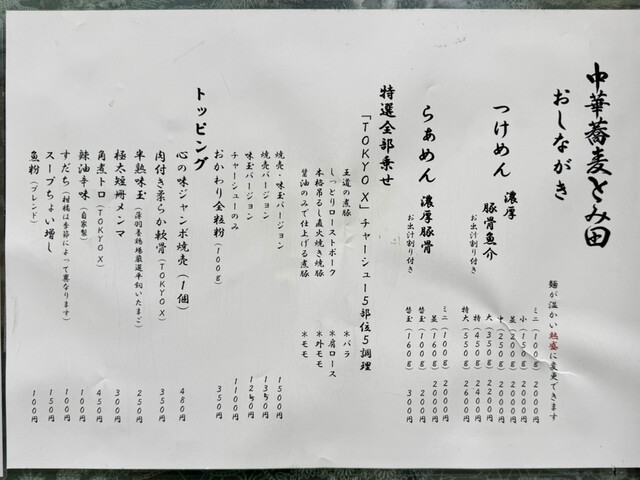 中華蕎麦とみ田
おしながき
麺が温かい熱盛に変更できます
つけめん 濃厚豚骨魚介
お出汁割り付き
ミニ(100g) 2000円
小(150g) 2000円
並(200g) 2000円
中(250g) 2000円
大(350g) 2200円
特(450g) 2400円
特大(550g) 2600円
らぁめん 濃厚豚骨
お出汁割り付き
ミニ(100g) 2000円
並(160g) 2000円
替玉(100g) 200円
替玉(160g) 300円
特選全部乗せ
「TOKYO X」チャーシュー5部位5調理
王道の煮豚 *バラ
しっとりローストポーク *肩ロース
本格吊るし直火焼き焼豚 *外モモ
醤油のみで仕上げる煮豚 *モモ
焼売・味玉バージョン 1500円
焼売バージョン 1350円
味玉バージョン 1250円
チャーシューのみ 1100円
おかわり全粒粉(100g) 350円
トッピング
心の味ジャンボ焼売(1個) 480円
肉付き柔らか軟骨(TOKYO X) 350円
半熟味玉(薄羽養鶏場厳選平飼いたまご) 250円
極太短冊メンマ 300円
角煮トロ(TOKYO X) 450円
辣油辛味(自家製) 100円
すだち(柑橘は季節によって異なります) 100円
スープちょい増し 150円
魚粉(ブレンド) 100円